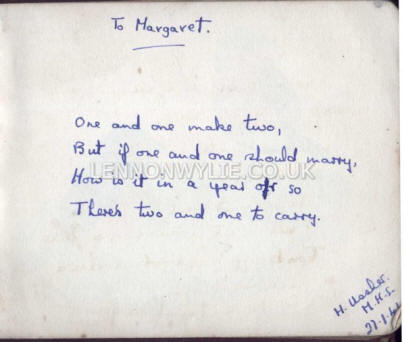 To Margaret.
One and one make two,
But if one and one should marry,
LENNONWYLIE.CO.UK
How is it in a year or so
There's two and one to carry.
H.
M.H.S.